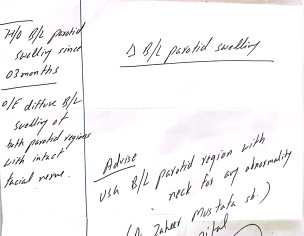 H/O B/L parotid
swelling since
03 months
O/E diffuse B/L
swelling of
both parotid regions
with intact
facial nerve.
Δ B/L parotid swelling
Advise
USG B/L parotid region with
neck for any abnormality
(Dr Zaheer Mustafa sb.)